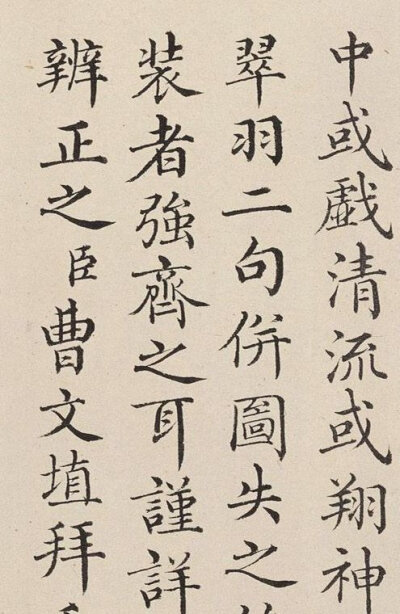 中或戲清流或翔神
翠羽二句併圖失之
裝者強齊之耳謹詳
辨正之臣曹文埴拜